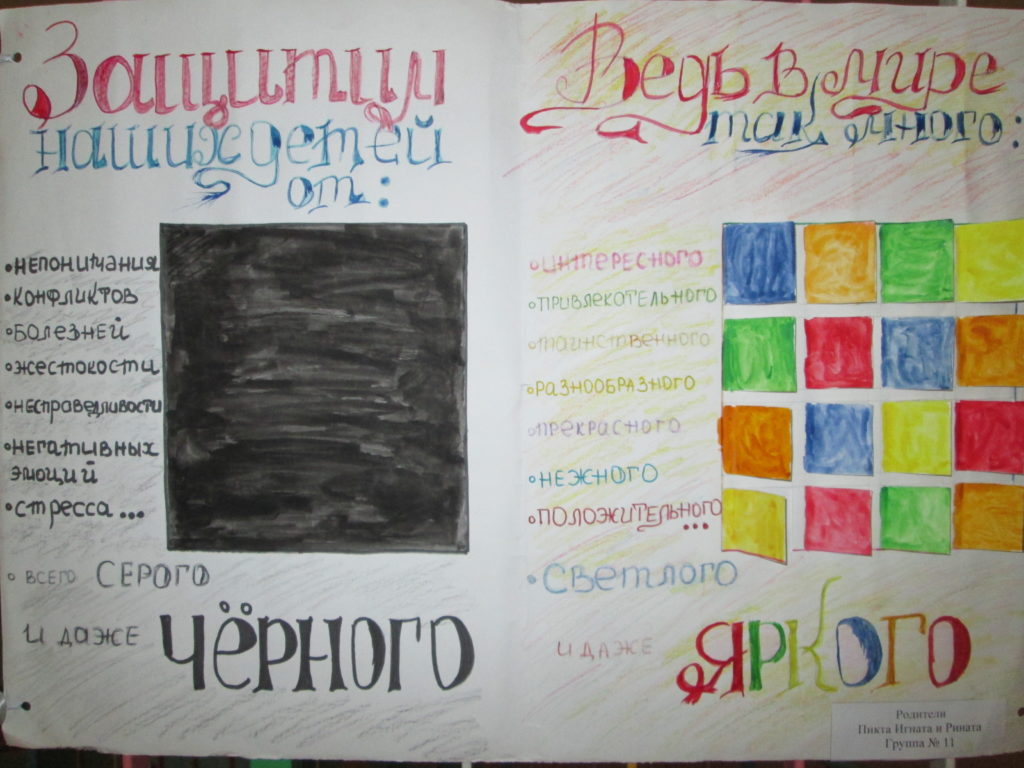 Защитим
наших детей
от:
•непонимания
•конфликтов
•болезней
•жестокости
•несправедливости
•негативных
эмоций
•стресса...
• всего СЕРОГО
и даже ЧЁРНОГО
Ведь в мире
так много:
•интересного
•привлекотельного
•таинственного
•разнообразного
•прекрасного
•нежного
•положительного
...
•светлого
и даже ЯРКОГО
Родители
Пикта Игната и Рината
Группа № 11